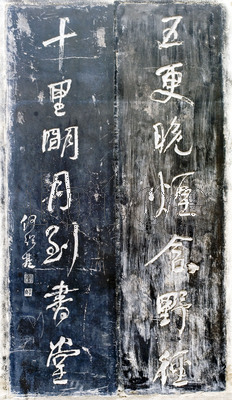 五更晚煙含野徑
十里明月到書堂
何紹基